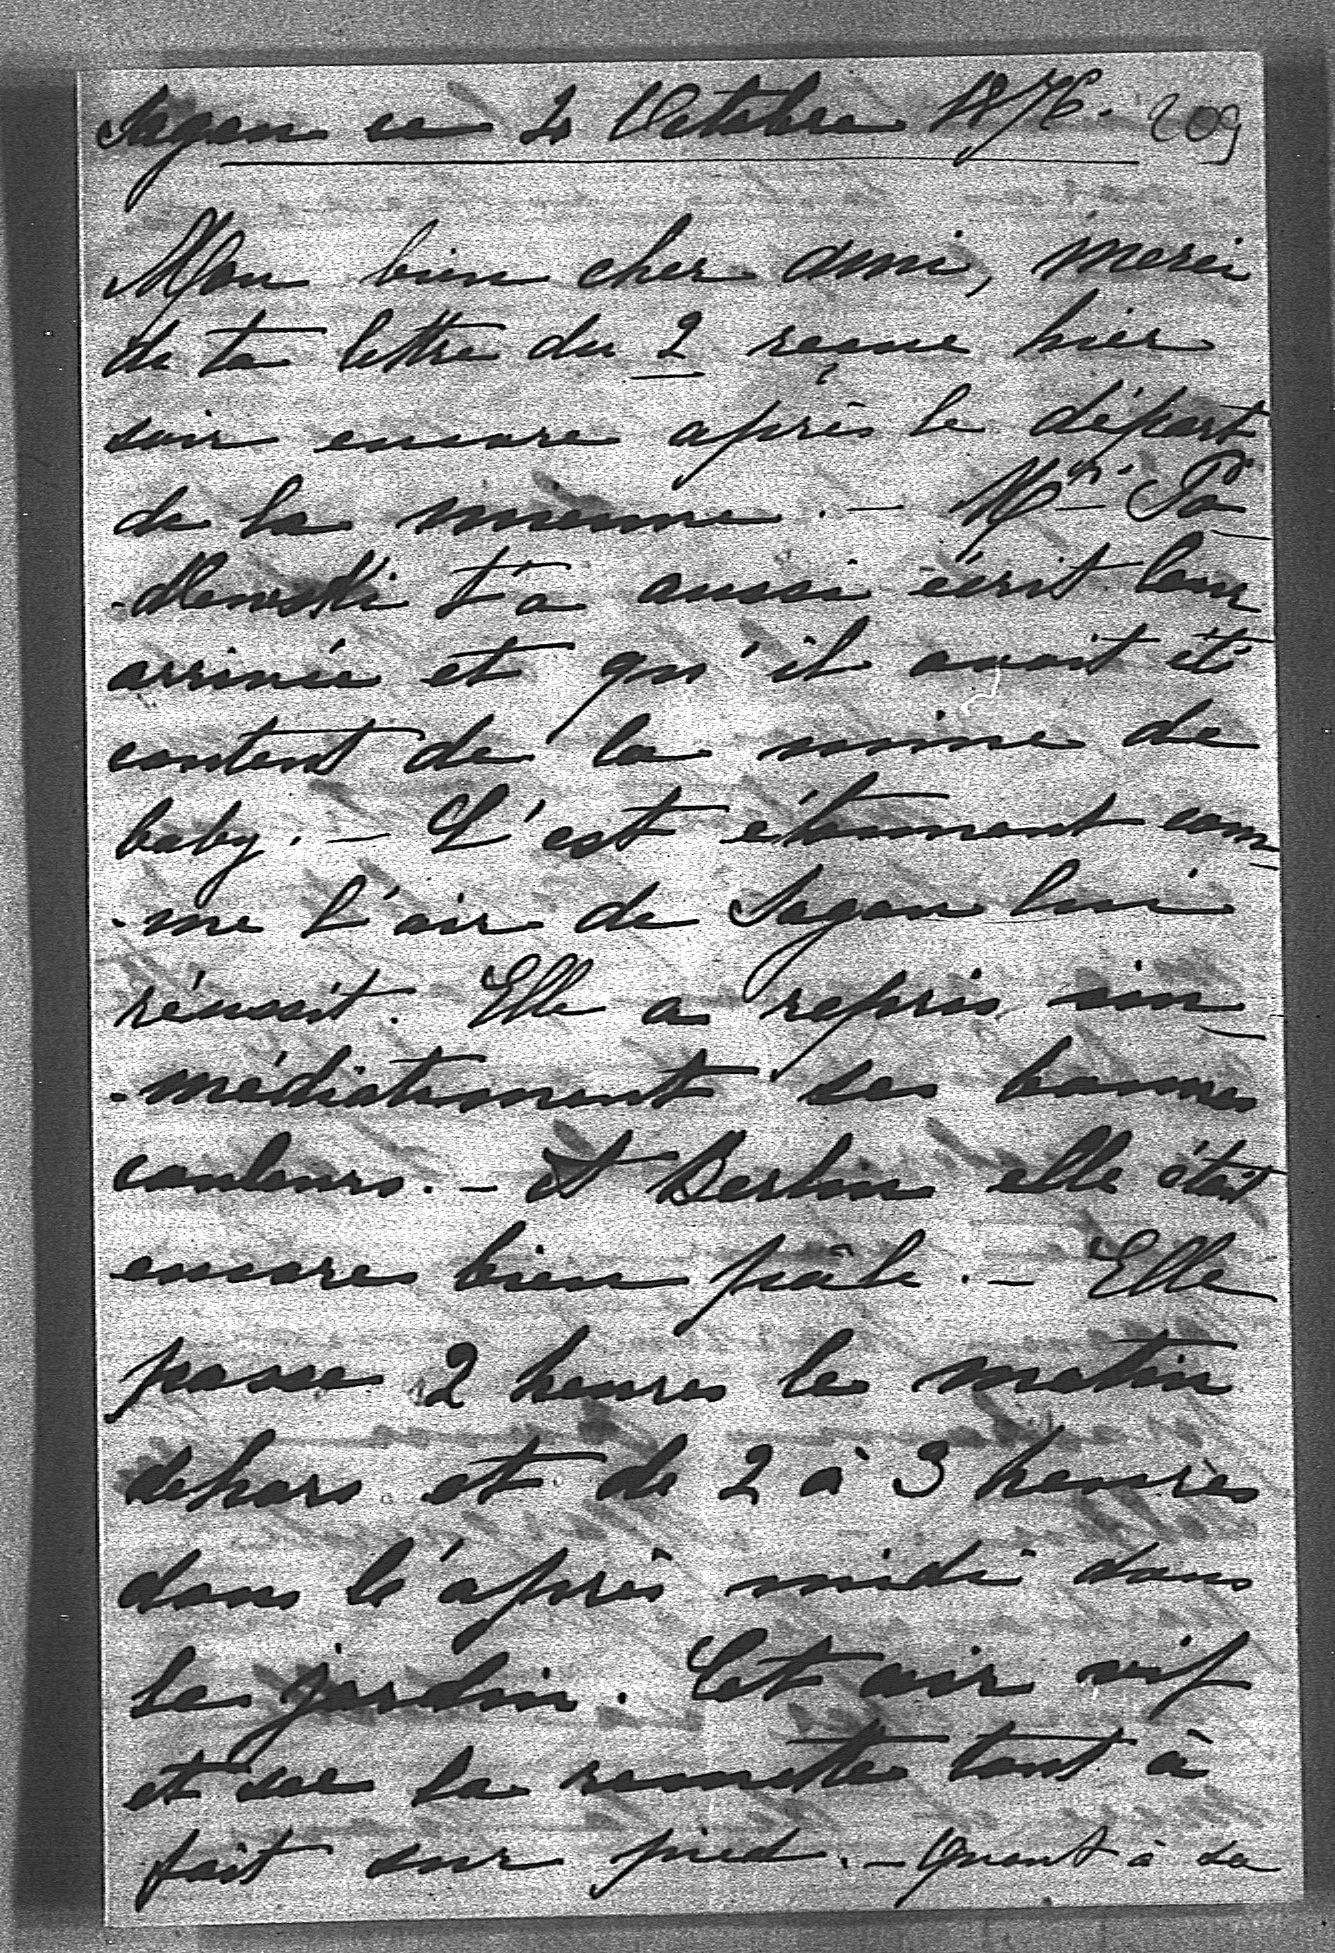 Sagan ce 4 Octobre 1876. 209
Mon bien cher ami, merci
de ta lettre du 2 reçue hier
soir encore après le départ
de la mienne. - Mr
t'a aussi écrit leur
arrivée et qu'il avait été
content de la mine de
baby. - C'est étonnant com
-me l'air de Sagan lui
réussit. Elle a repris im
-médiatement ses bonnes
couleurs. - A Berlin elle était
encore bien pâle. - Elle
passe 2 heures le matin
dehors et de 2 à 3 heures
dans l'après midi dans
le jardin. Cet air vif
et sec la remette tout à
fait sur pied. - Quant à sa